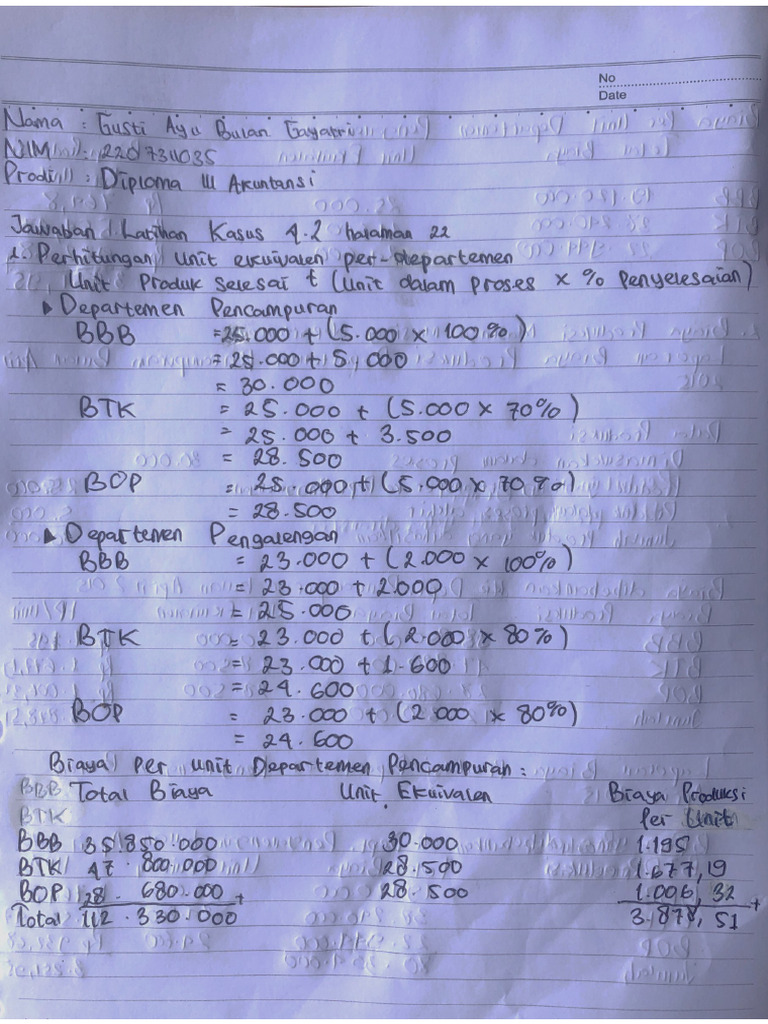 No
Date
Nama : Gusti Ayu Bulan Gayatri
NIM : 2207311035
Prodi : Diploma III Akuntansi
Jawaban Latihan Kasus 4.2 halaman 22
1. Perhitungan unit ekuivalen per-departemen
Unit Produk selesai + (Unit dalam proses x % Penyelesaian)
Departemen Pencampuran
BBB = 25.000 + (5.000 x 100%)
= 25.000 + 5.000
= 30.000
BTK = 25.000 + (5.000 x 70%)
= 25.000 + 3.500
= 28.500
BOP = 25.000 + (5.000 x 70%)
= 28.500
Departemen Pengalengan
BBB = 23.000 + (2.000 x 100%)
= 23.000 + 2.000
= 25.000
BTK = 23.000 + (2.000 x 80%)
= 23.000 + 1.600
= 24.600
BOP = 23.000 + (2.000 x 80%)
= 24.600
Biaya per unit Departemen Pencampuran :
BBB Total Biaya Unit Ekuivalen Biaya Produksi
BTK Per Unit
BBB 35.850.000 30.000 1.195
BTK 47.800.000 28.500 1.677,19
BOP 28.680.000 + 28.500 1.006,32 +
Total 112.330.000 3.878,51